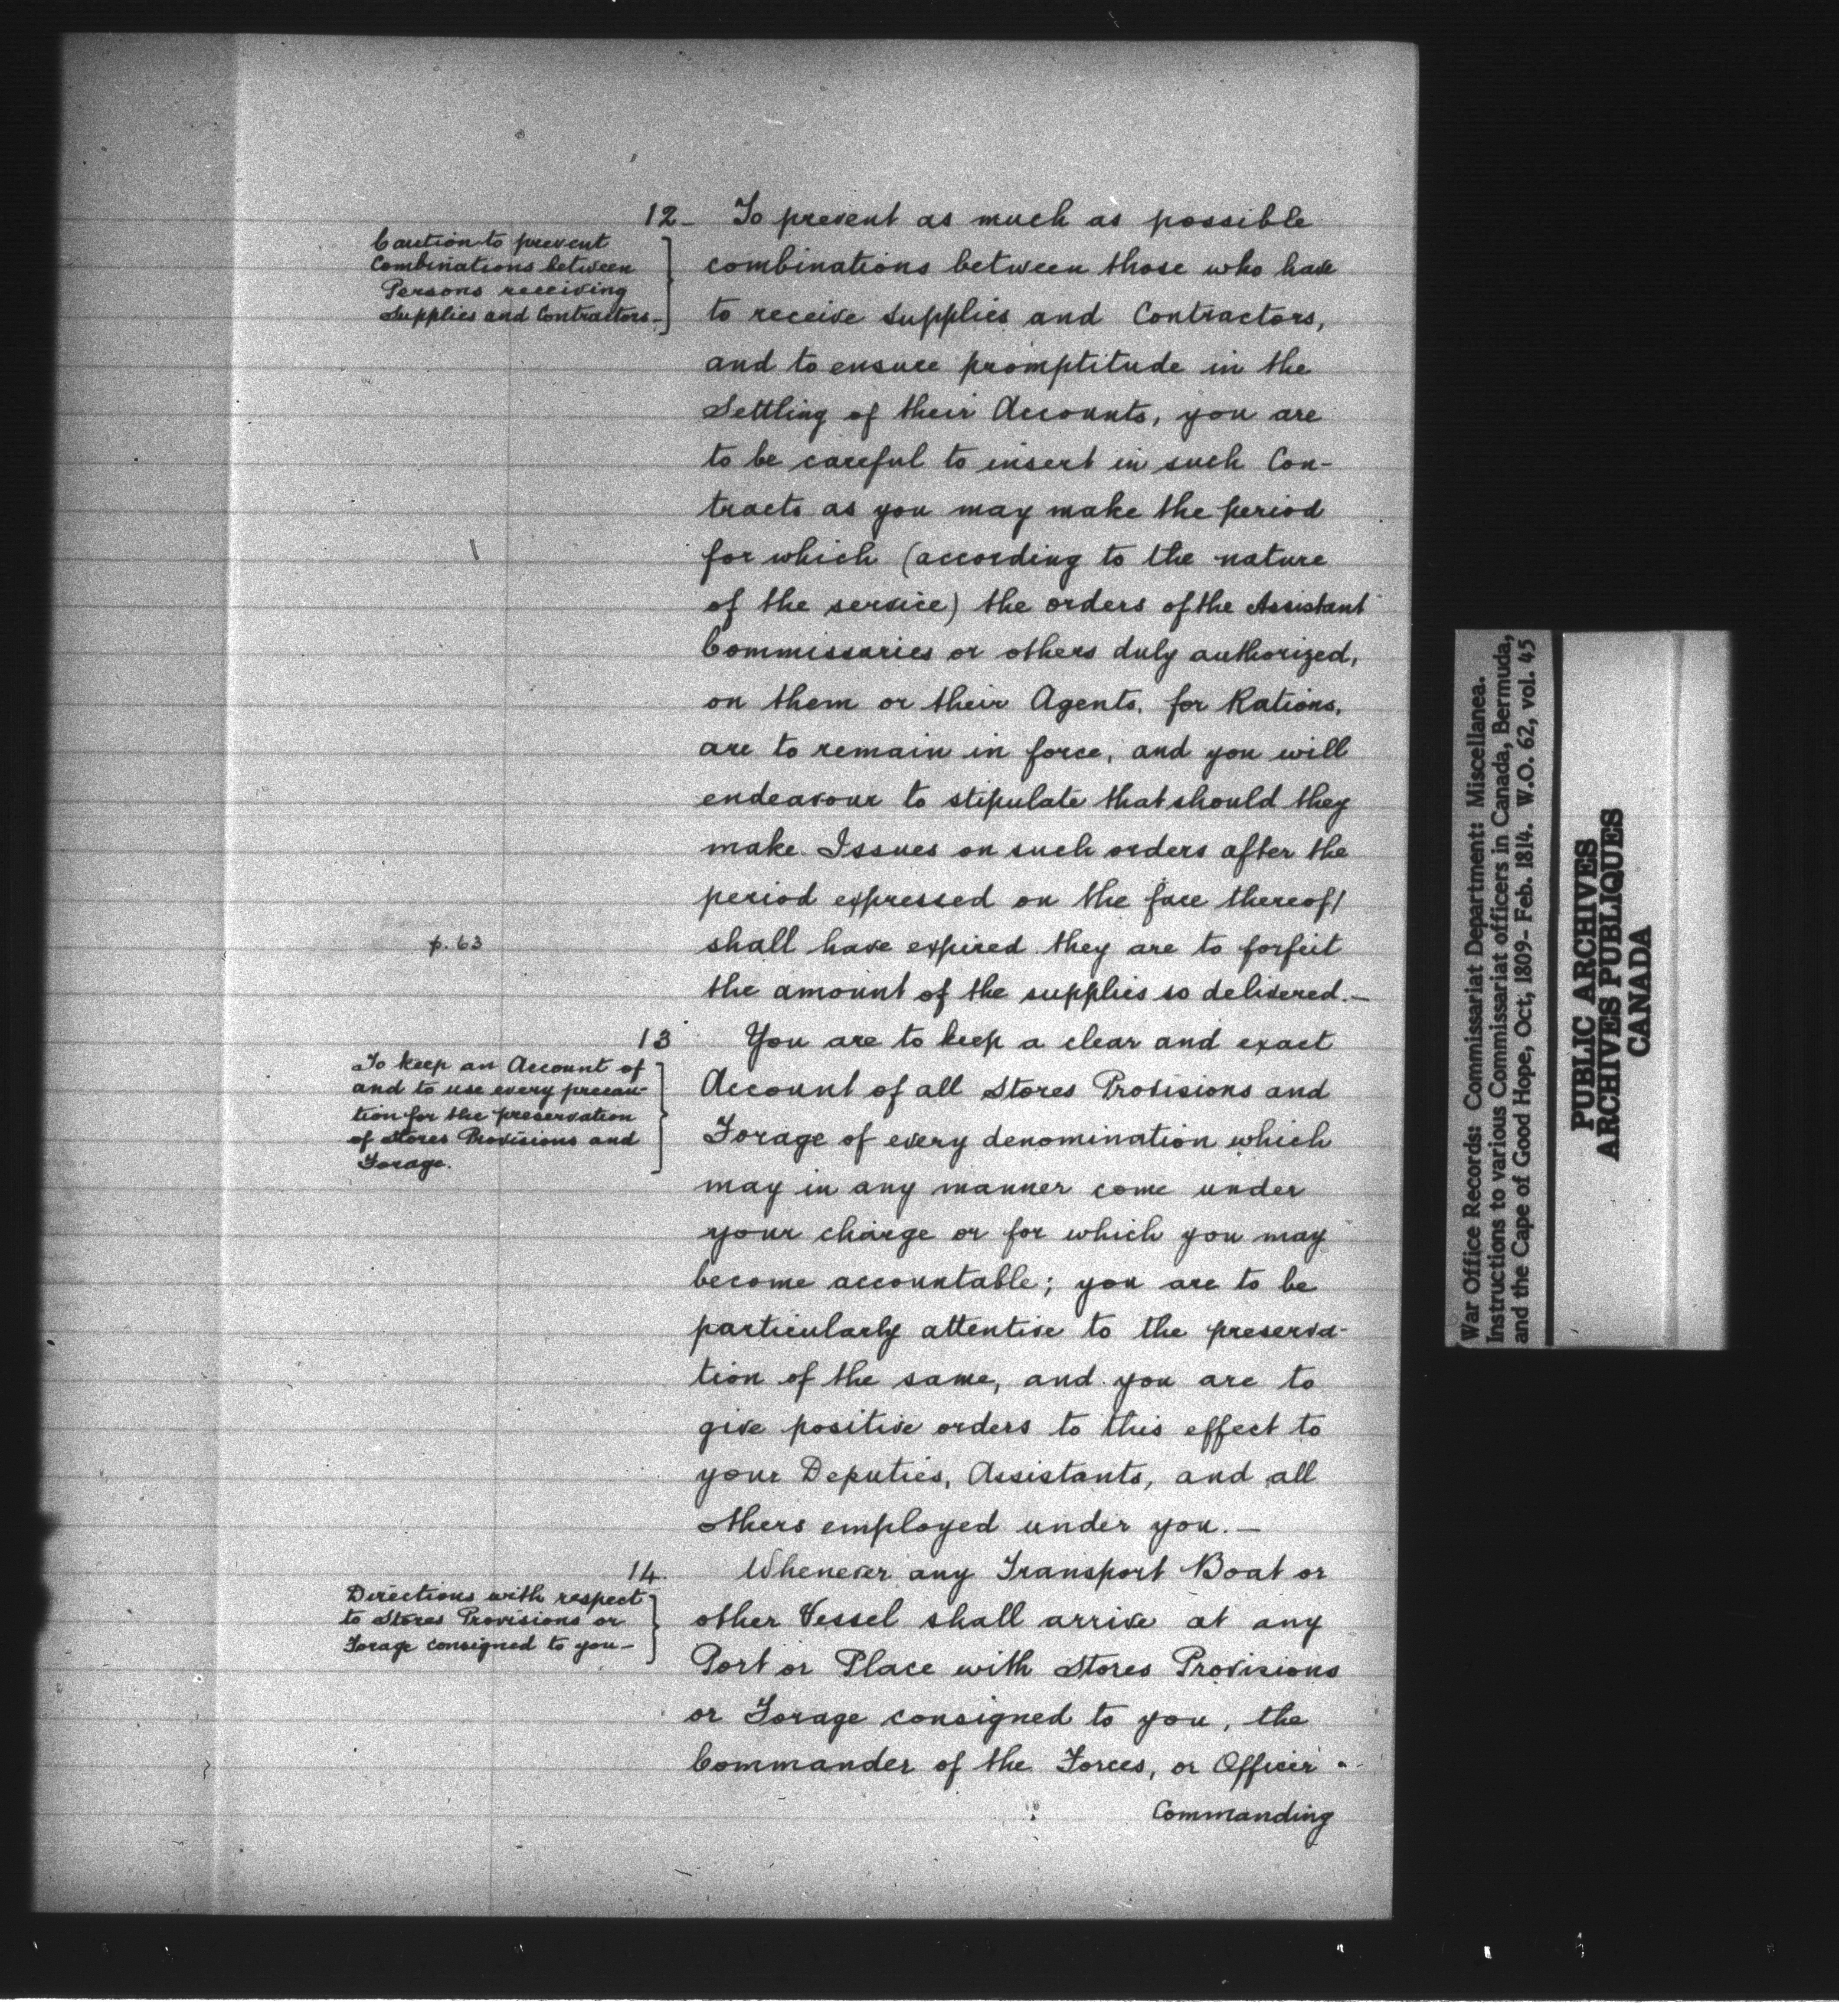 12-
Caution to prevent
Combinations between
Persons receiving
Supplies and Contractors-
To prevent as much as possible
combinations between those who have
to receive supplies and Contractors,
and to ensure promptitude in the
Settling of their Accounts, you are
to be careful to insert in such Con-
tracts as you may make the period
for which (according to the nature
of the service) the orders of the Assistant
Commissaries or others duly authorized,
on them or their Agents, for Rations,
are to remain in force, and you will
endeavour to stipulate that should they
make Issues on such orders after the
period expressed on the face thereof/
p. 63
shall have expired they are to forfeit
the amount of the supplies so delivered.-
13
To keep an Account of
and to use every precau-
tion for the preservation
of Stores Provisions and
Forage.
You are to keep a clear and exact
Account of all Stores Provisions and
Forage of every denomination which
may in any manner come under
your charge or for which you may
become accountable; you are to be
particularly attentive to the preserva-
tion of the same, and you are to
give positive orders to this effect to
your Deputies, Assistants, and all
others employed under you.-
14.
Directions with respect
to Stores Provisions or
Forage consigned to you-
Whenever any Transport Boat or
other Vessel shall arrive at any
Port or Place with Stores Provisions
or Forage consigned to you, the
Commander of the Forces, or Officer
Commanding
War Office Records: Commissariat Department: Miscellanea.
Instructions to various Commissariat officers in Canada, Bermuda,
and the Cape of Good Hope, Oct, 1809- Feb. 1814. W.O. 62, vol. 45
PUBLIC ARCHIVES
ARCHIVES PUBLIQUES
CANADA